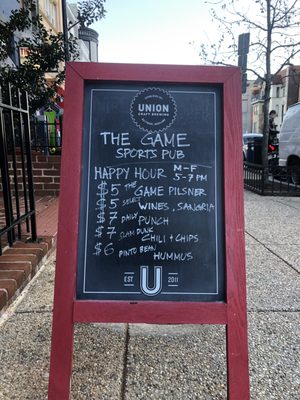 UNION
CRAFT BREWING
THE GAME
SPORTS PUB
HAPPY HOUR M-F 5-7 PM
$5 THE GAME PILSNER
$5 SELECT WINES, SANGRIA
$7 DAILY PUNCH
$7 SLAM DUNK CHILI + CHIPS
$6 PINTO BEAN HUMMUS
EST U 2011